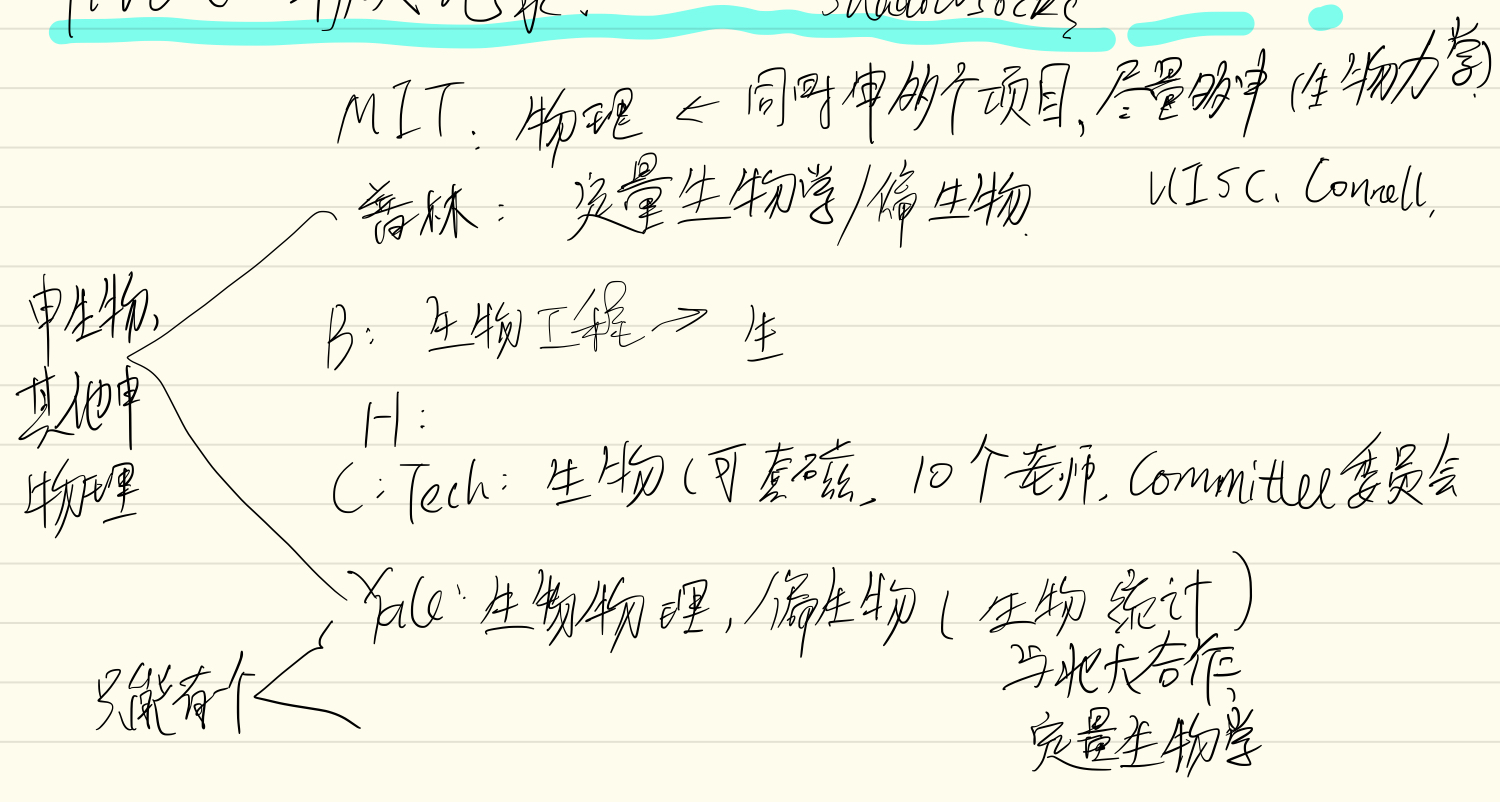 shadowsocks
MIT: 物理 ← 同时申多个项目, 尽量多申 (生物力学)
普林: 定量生物学/偏生物.
UISC、Connell,
申生物,
其他申
物理
B: 生物工程 → 生
H:
C:Tech: 生物 (可套磁, 10个老师, Committee委员会
Yale: 生物物理, 偏生物 (生物统计)
与北大合作,
定量生物学
只能有个